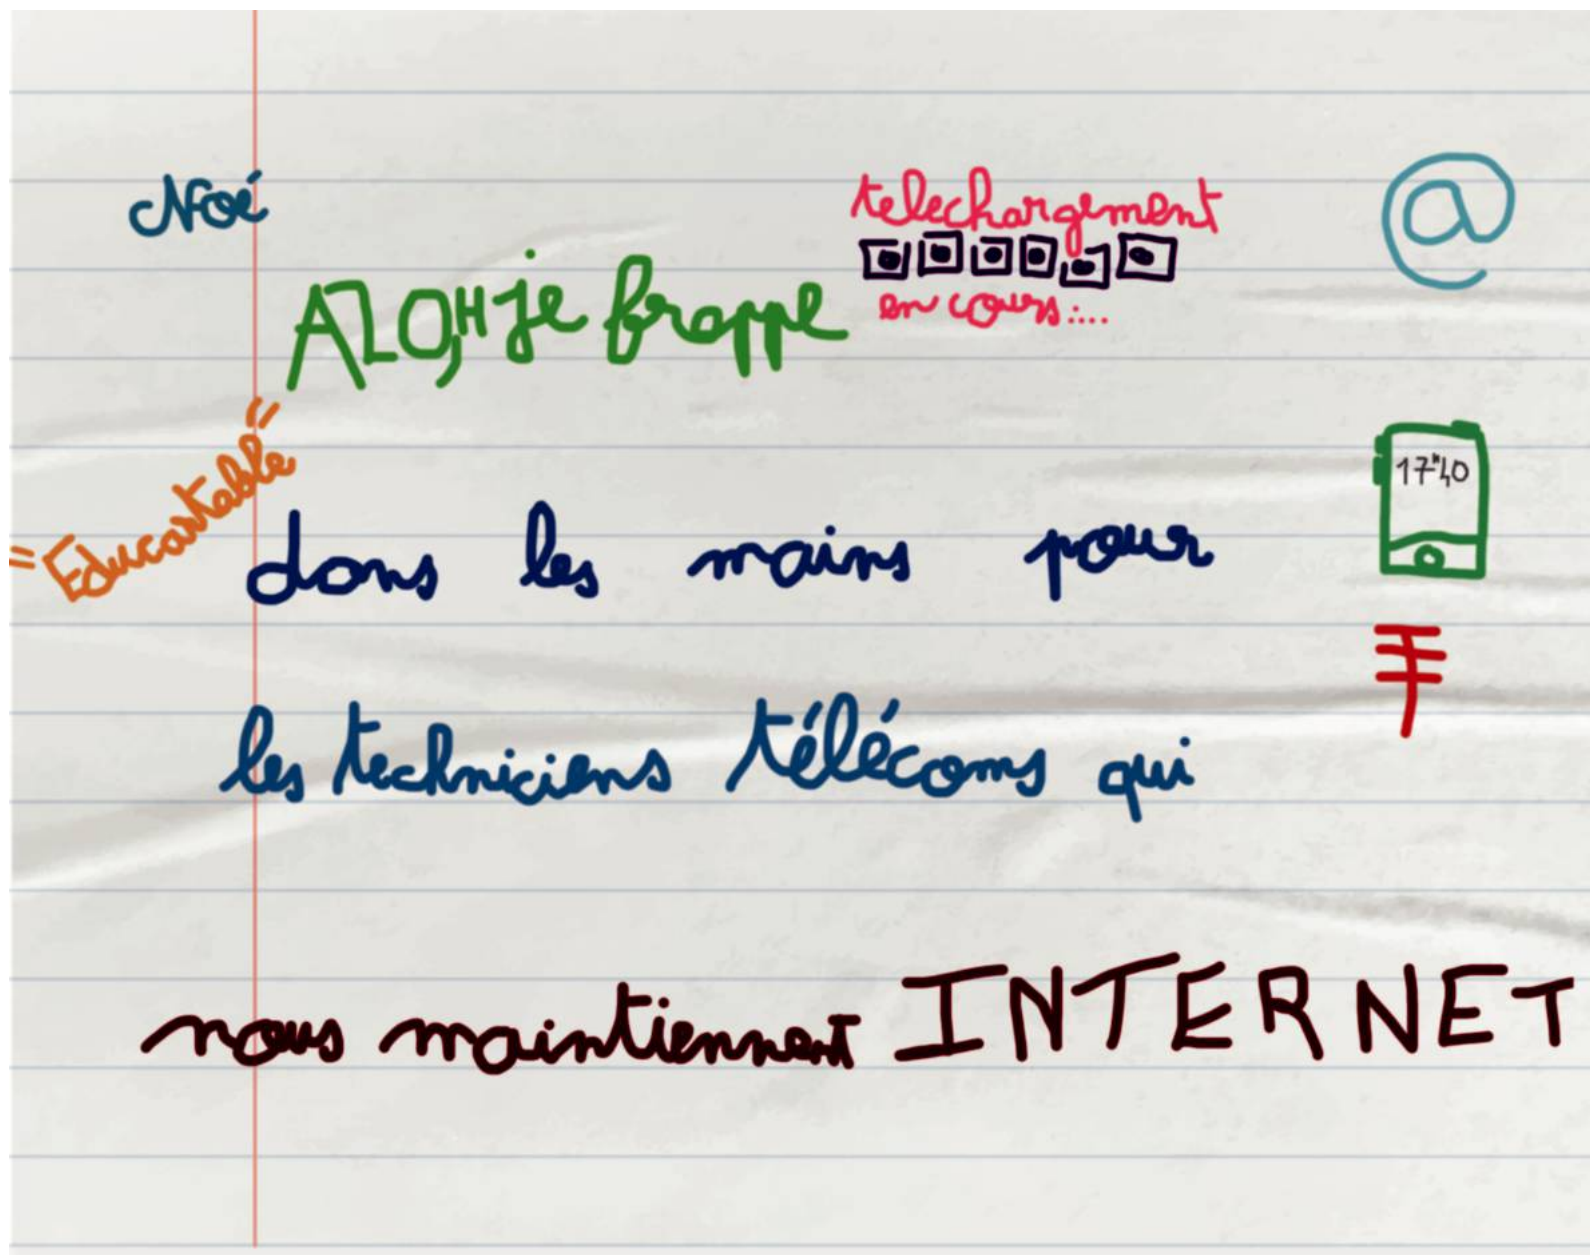 Noé
telechargement
en cours....
@
A 20H je frappe
"Educartable"
17"40
dans les mains pour
les techniciens télécoms qui
nous maintiennent INTERNET